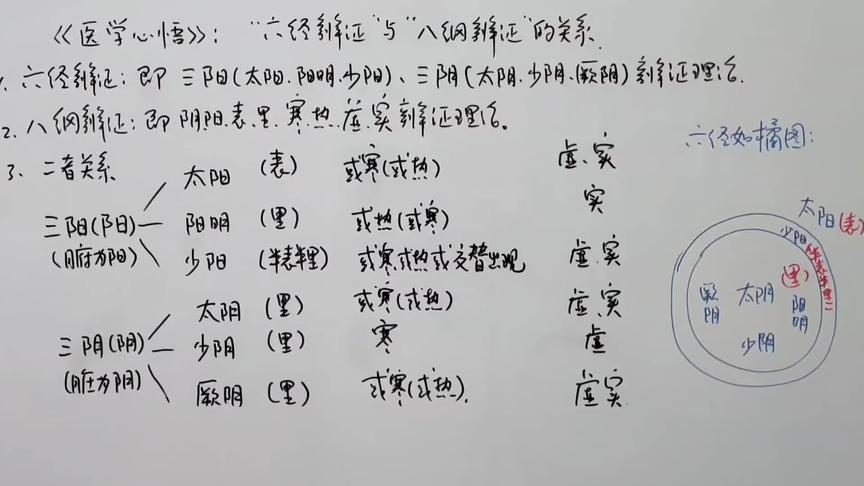 《医学心悟》："六经辨证"与"八纲辨证"的关系.
1. 六经辨证：即 三阳(太阳.阳明.少阳)、三阴(太阴.少阴.厥阴)辨证理论.
2. 八纲辨证：即阴阳.表里.寒热.虚实辨证理论。
3、二者关系
太阳 (表) 或寒(或热) 虚.实
三阳(阳) 阳明 (里) 或热(或寒) 实
(腑为阳) 少阳 (半表半里) 或寒或热或交替出现 虚.实
太阴 (里) 或寒(或热) 虚.实
三阴(阴) 少阴 (里) 寒 虚
(脏为阴) 厥阴 (里) 或寒(或热). 虚实
六经如橘图：
太阳(表)
少阳(半表半里)
(里)
厥阴 太阴 阳明
少阴